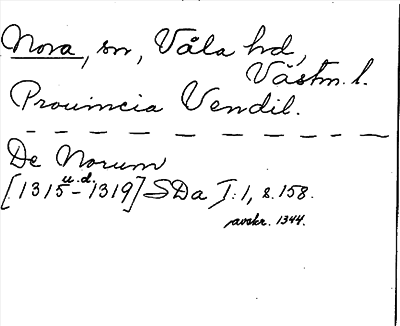 Nora, sn, Våla hd,
Västm. l.
Prouincia Vendil.
De Norum
[1315 u.d. – 1319] SDa I:1, s. 158.
avskr. 1344.